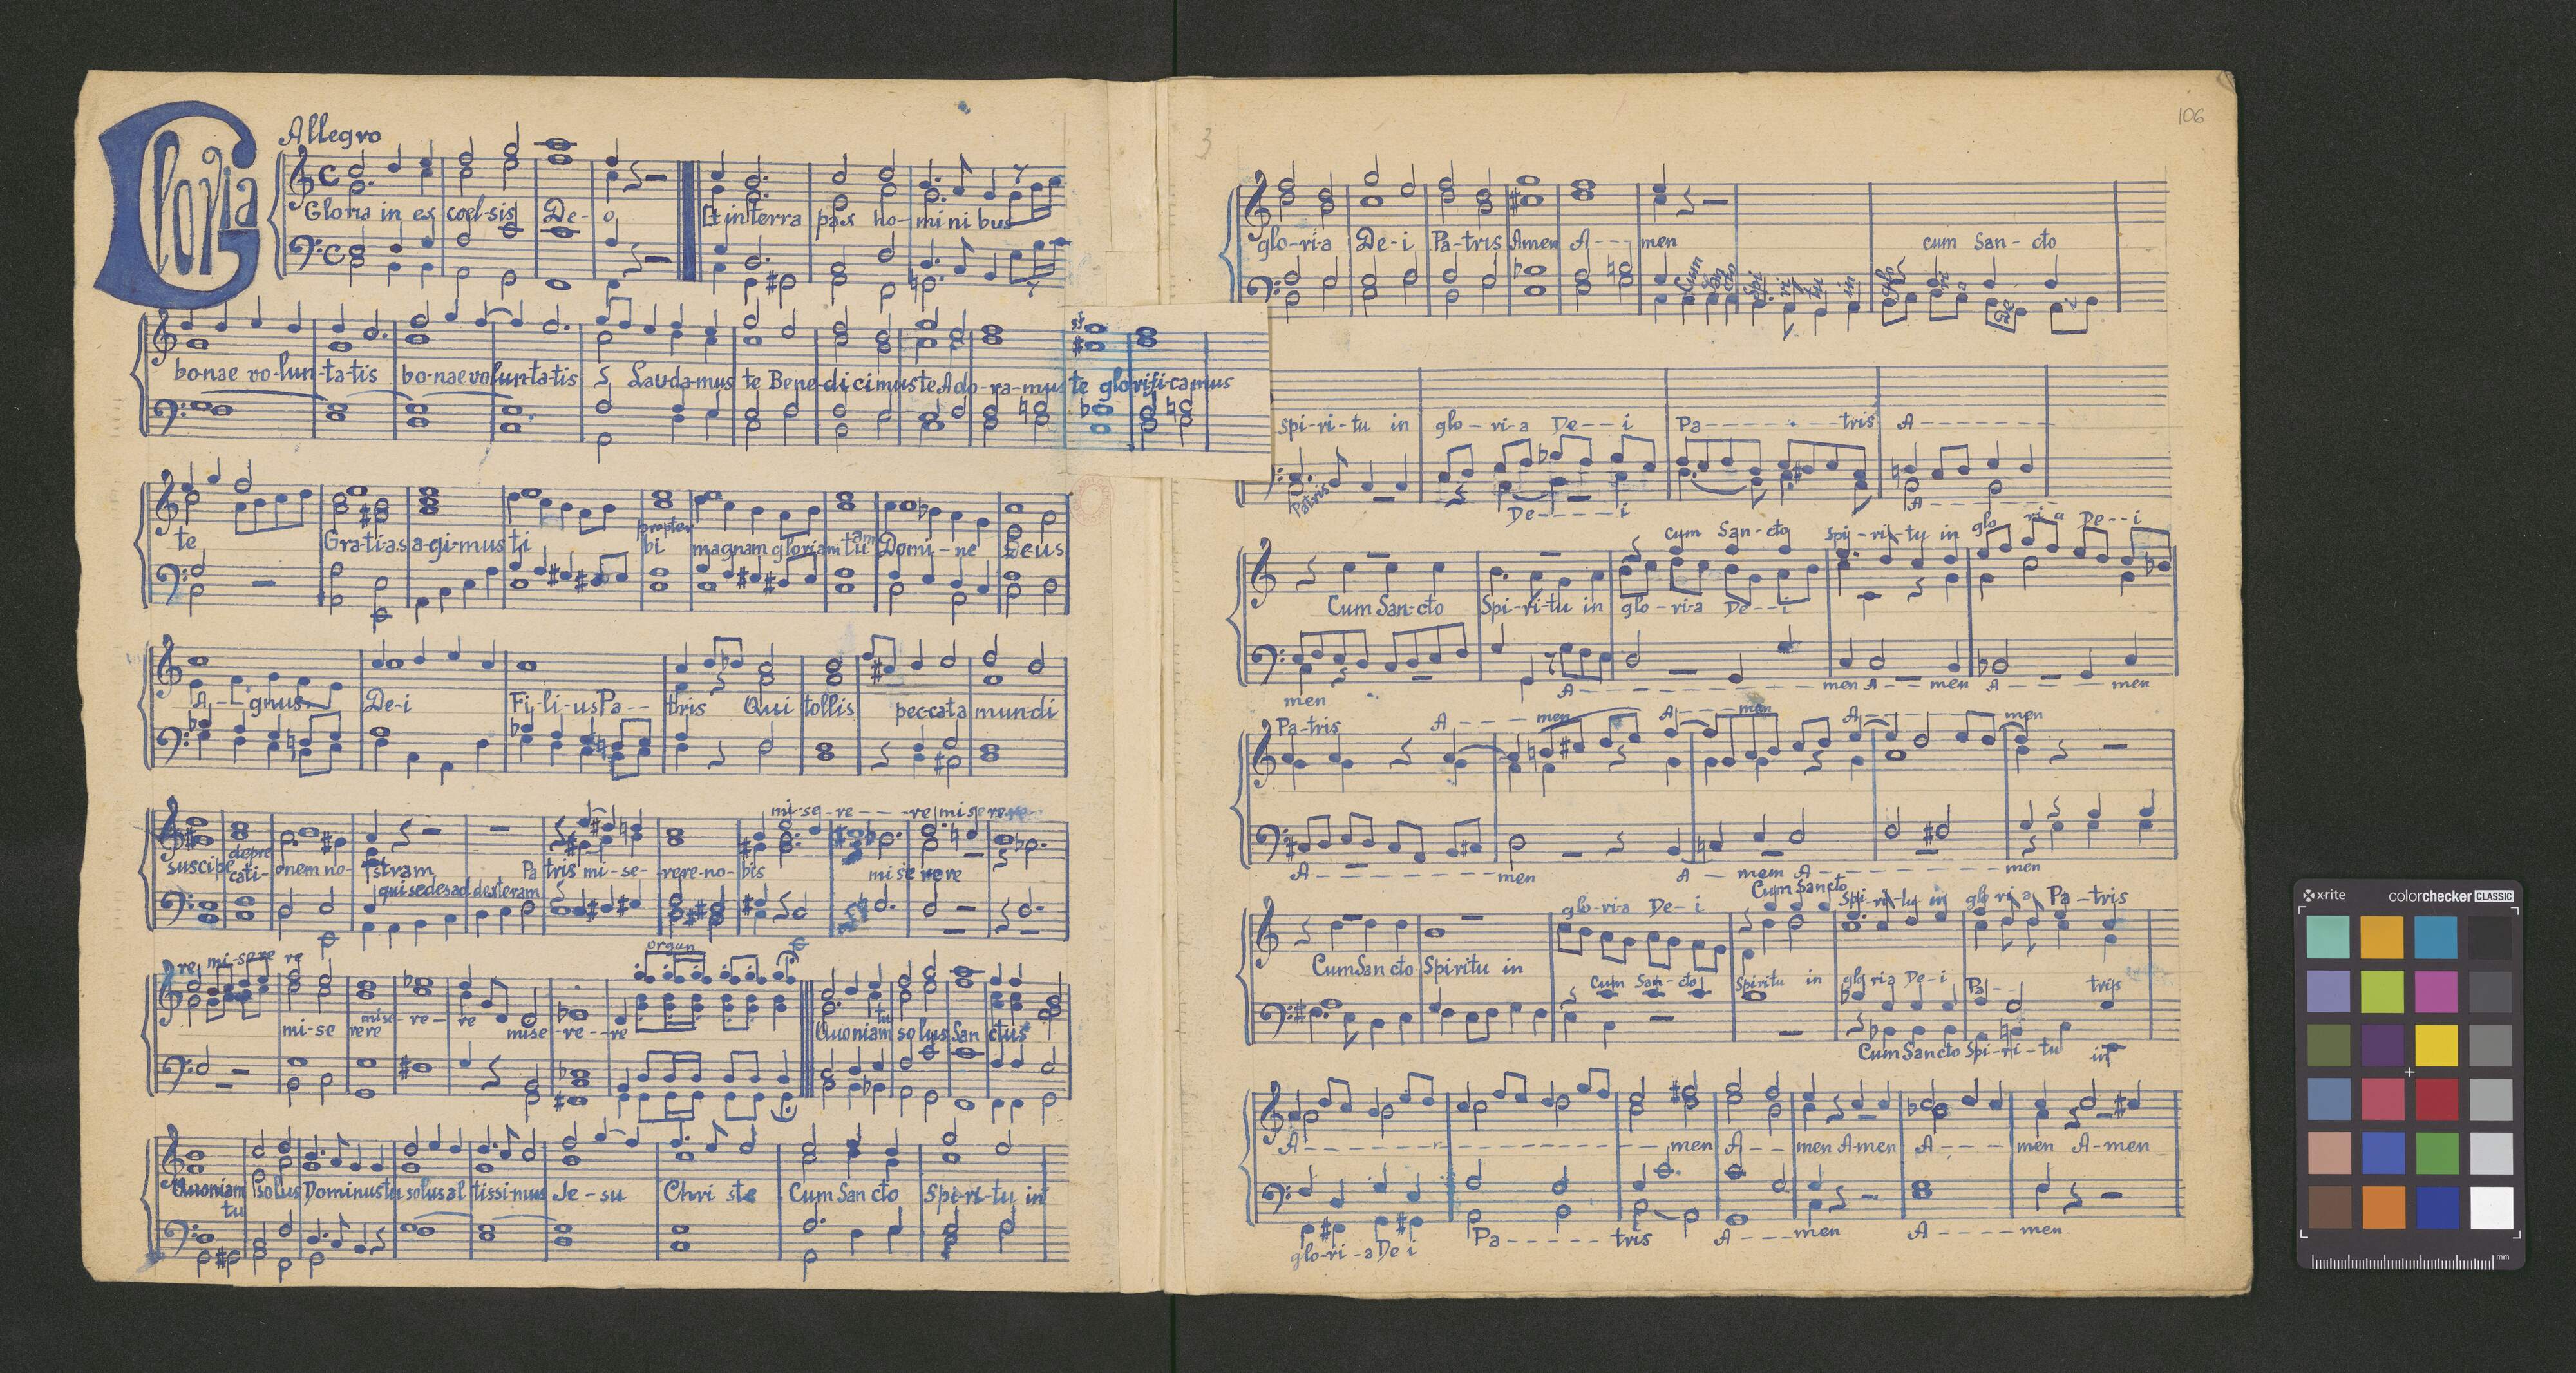 Gloria
Allegro
Gloria in ex coel-sis De- o, Et in terra pax ho- mi ni bus
bo-nae vo-lun-ta-tis bo-nae voluntatis Lauda-mus te Bene-di ci mus te Ado-ra-mus te glorifi-camus
te Gra-ti-as a-gi-mus ti bi propter magnam gloriam tu am Domi-ne Deus
A-gnus De-i Fi-li-us Pa-- tris Qui tollis peccata mun-di
mi-se-re---re misere re
suscipe depre cati- onem no- stram qui sedes ad dexteram Pa tris mi-se- rere-no- bis mi se re re
re, mi-se re re
organ
mi-se rere mise-re- re mise-re--re Quoniam tu solus San ctus
Quoniam tu solus Dominus tu solus al tissi-mus Je-su Chri ste Cum San cto Spi-ri-tu in
3
106
glo-ri-a De-i Pa-tris Amen A--- men cum San-cto
Cum San cto Spi ri tu in glo ri a De i
spi-ri-tu in glo-ri-a De--i Pa------tris A-------
Patris De----i A----
cum San-cto spi-ri-tu in glo ri a De--i
Cum San-cto Spi-ri-tu in glo-ri-a De--i
men A-------------men A---men A----men
Pa-tris A----men A----men A-------men
A----------men A--men A--------men
glo-ria De-i Cum Sancto Spi-ri-tu in glo ri a Pa-tris
Cum San cto Spiritu in
Cum San-cto Spiritu in glo ria De-i Pa-- tris
Cum Sancto Spi-ri-tu in
A------------------men A--- men A-men A---- men A-men
glo-ri-a De i Pa-----tris A---men A----men
x-rite colorchecker CLASSIC
mm